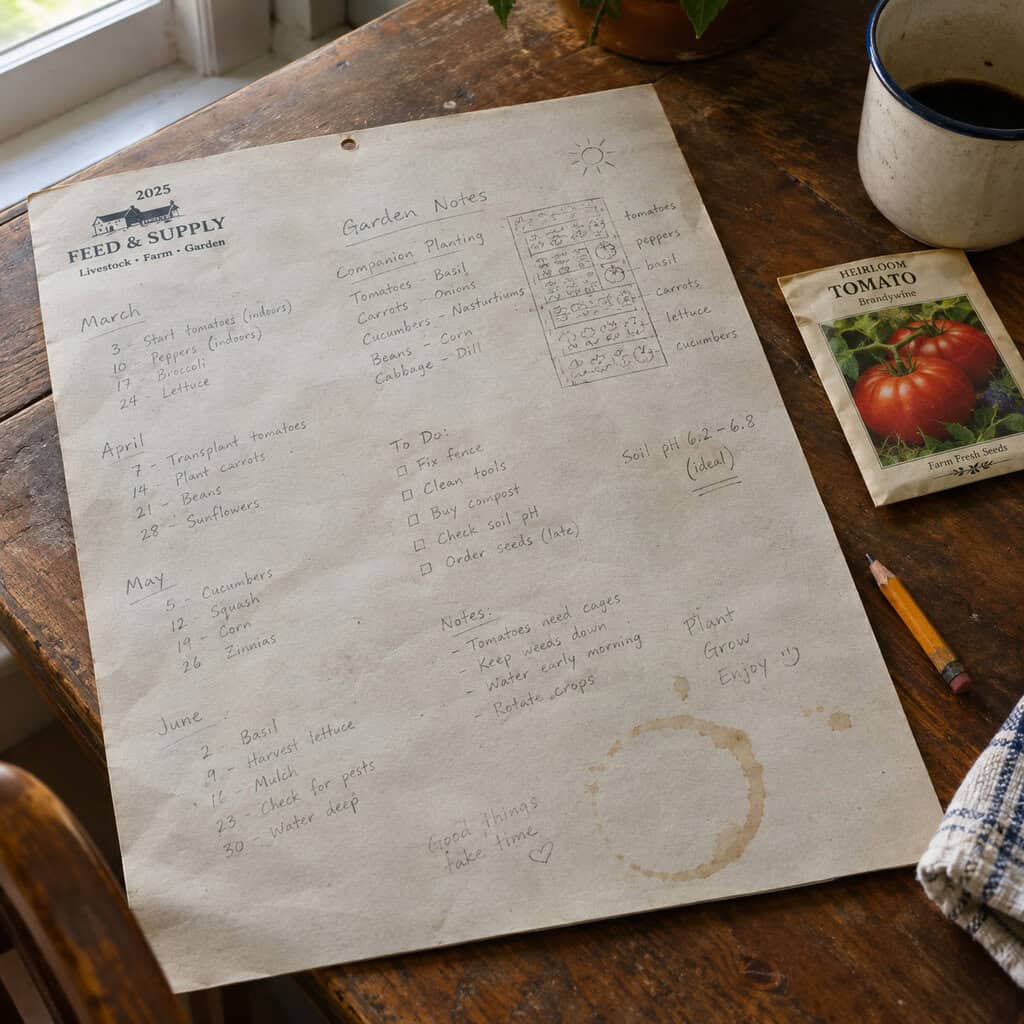 2025
FEED & SUPPLY
Livestock • Farm • Garden
March
3 - Start tomatoes (indoors)
10 - Peppers (indoors)
17 - Broccoli
24 - Lettuce
April
7 - Transplant tomatoes
14 - Plant carrots
21 - Beans
28 - Sunflowers
May
5 - Cucumbers
12 - Squash
19 - Corn
26 - Zinnias
June
2 - Basil
9 - Harvest lettuce
16 - Mulch
23 - Check for pests
30 - Water deep
Garden Notes
Companion Planting
Tomatoes - Basil
Carrots - Onions
Cucumbers - Nasturtiums
Beans - Corn
Cabbage - Dill
To Do:
Fix fence
Clean tools
Buy compost
Check soil pH
Order seeds (late)
Notes:
- Tomatoes need cages
- Keep weeds down
- Water early morning
- Rotate crops
Good things
take time
tomatoes
peppers
basil
carrots
lettuce
cucumbers
Soil pH 6.2 - 6.8
(ideal)
Plant
Grow
Enjoy
HEIRLOOM
TOMATO
Brandywine
Farm Fresh Seeds